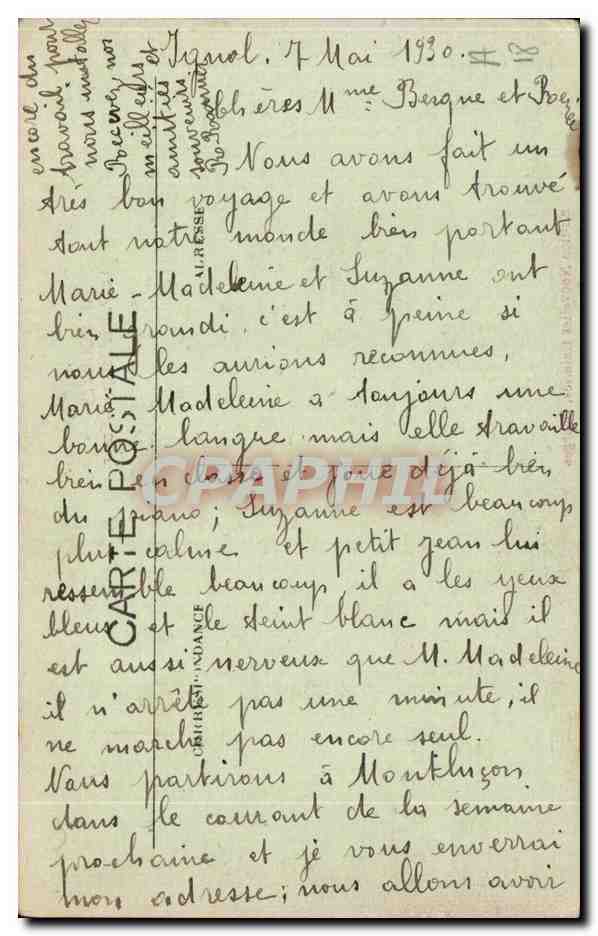 Ignol. 7 Mai 1930.
18
Chères Mme Besque et
Nous avons fait un
très bon voyage et avons trouvé
tout notre monde bien portant
Marie-Madeleine et Suzanne ont
bien grandi, c'est à peine si
nous les aurions reconnues,
Marie Madeleine a toujours une
bonne langue mais elle travaille
bien en classe et joue déjà bien
du piano; Suzanne est beaucoup
plus calme et petit Jean lui
ressemble beaucoup, il a les yeux
bleus et le teint blanc mais il
est aussi nerveux que M. Madeleine
il n'arrête pas une minute, il
ne marche pas encore seul.
Nous partirons à Montluçon
dans le courant de la semaine
prochaine et je vous enverrai
mon adresse; nous allons avoir
encore du
travail pour
nous installer
Recevez nos
meilleurs et
amitiés
souvenirs
CARTE POSTALE
ADRESSE
CORRESPONDANCE
CPAPHIL